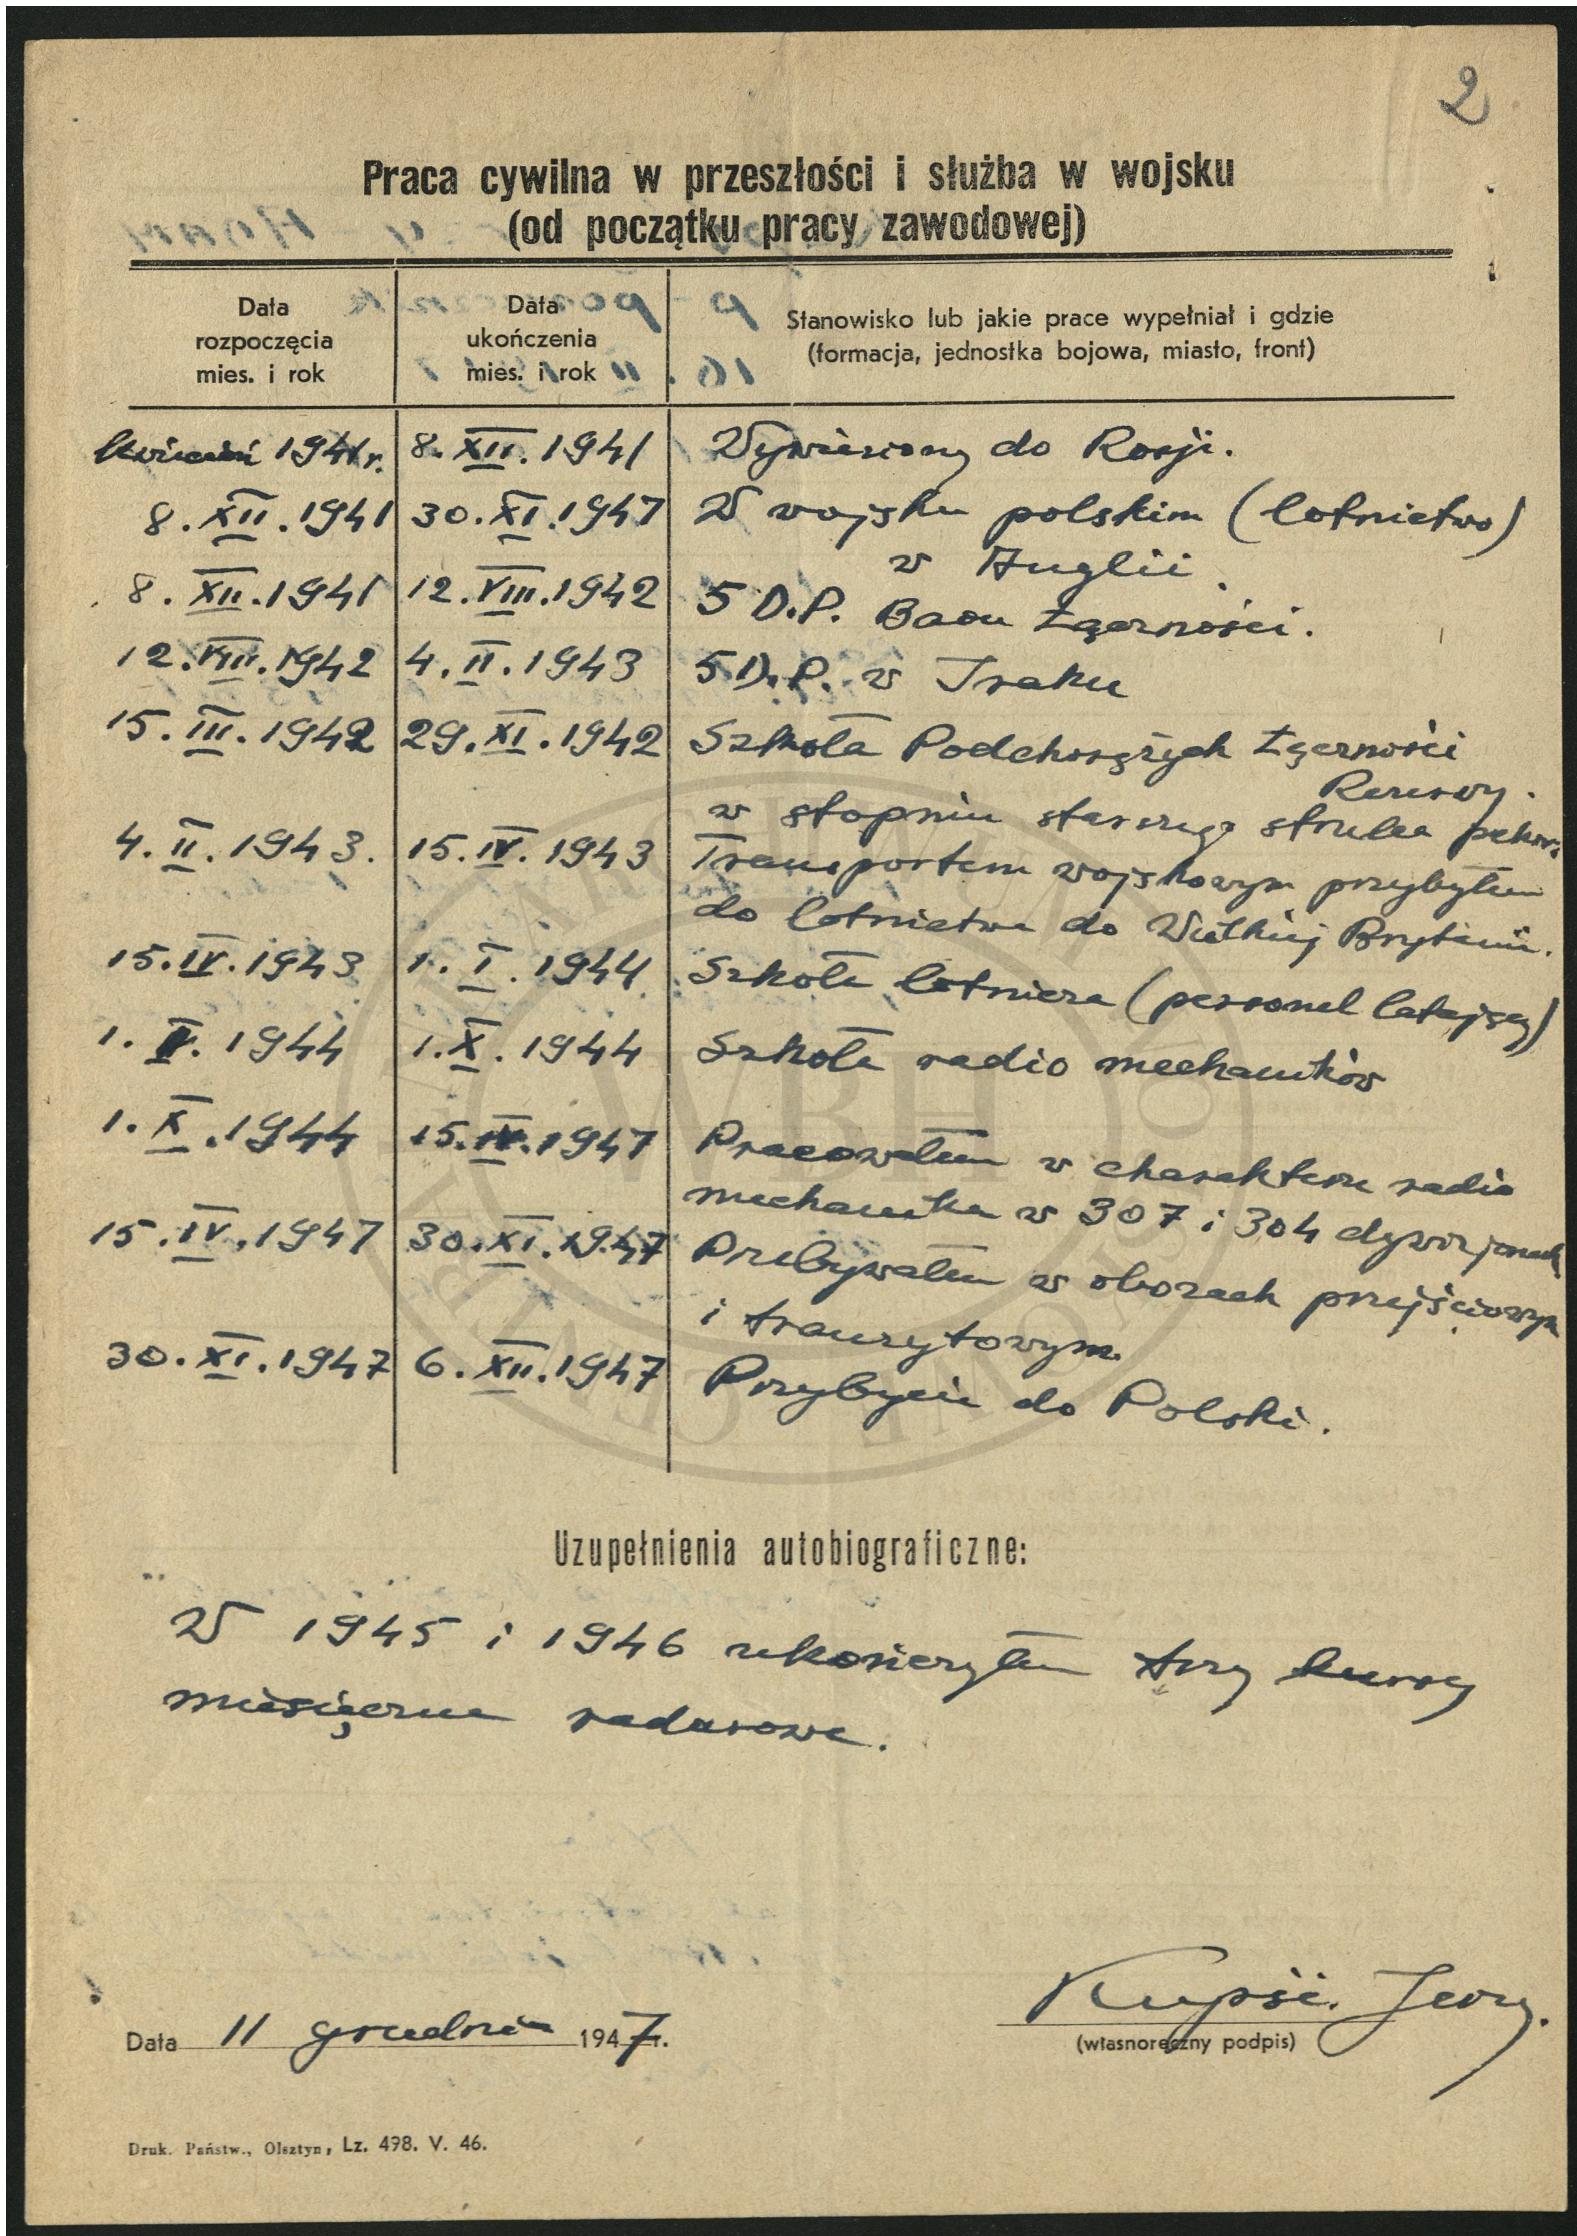 2
Praca cywilna w przeszłości i służba w wojsku
(od początku pracy zawodowej)
Data
rozpoczęcia
mies. i rok
Data
ukończenia
mies. i rok
Stanowisko lub jakie prace wypełniał i gdzie
(formacja, jednostka bojowa, miasto, front)
kwiecień 1941 r. 8. XII. 1941 Wywieziony do Rosji.
8. XII. 1941 30. XI. 1947 W wojsku polskim (lotnictwo)
w Anglii.
8. XII. 1941 12. VIII. 1942 5 D.P. Baon Łączności.
12. VIII. 1942 4. II. 1943 5 D.P. w Iraku
15. III. 1942 29. XI. 1942 Szkoła Podchorążych Łączności
Rezerwy.
w stopniu starszego strzelca pchor.
4. II. 1943. 15. IV. 1943 Transportem wojskowym przybyłem
do lotnictwa do Wielkiej Brytanii.
15. IV. 1943 1. I. 1944 Szkoła lotnicza (personel latający)
1. 1944 1. X. 1944 Szkoła radio mechaników
1. X. 1944 15. IV. 1947 Pracowałem w charakterze radio
mechanika w 307 i 304 dywizjonach
15. IV. 1947 30. XI. 1947 Przebywałem w obozach przejściowym
i tranzytowym.
30. XI. 1947 6. XII. 1947 Przybycie do Polski.
Uzupełnienia autobiograficzne:
W 1945 i 1946 ukończyłem trzy kursy
miesięczne radarowe.
Data 11 grudnia 1947 r.
Kupść. Jerzy.
(własnoręczny podpis)
Druk. Państw., Olsztyn, Lz. 498. V. 46.
WBH